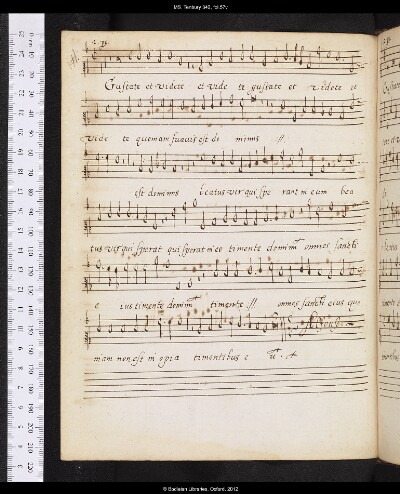 MS. Tenbury 342, fol.57v
Gustate et videte et vide te gustate et videte et
vide te quoniam suavis est do minus //
est dominus beatus vir qui spe rant in eum bea
tus vir qui sperat qui sperat in eo timente dominum omnes sancti
e ius timente dominum timente // omnes sancti eius quo
niam non est in opia timentibus e
© Bodleian Libraries, Oxford, 2012